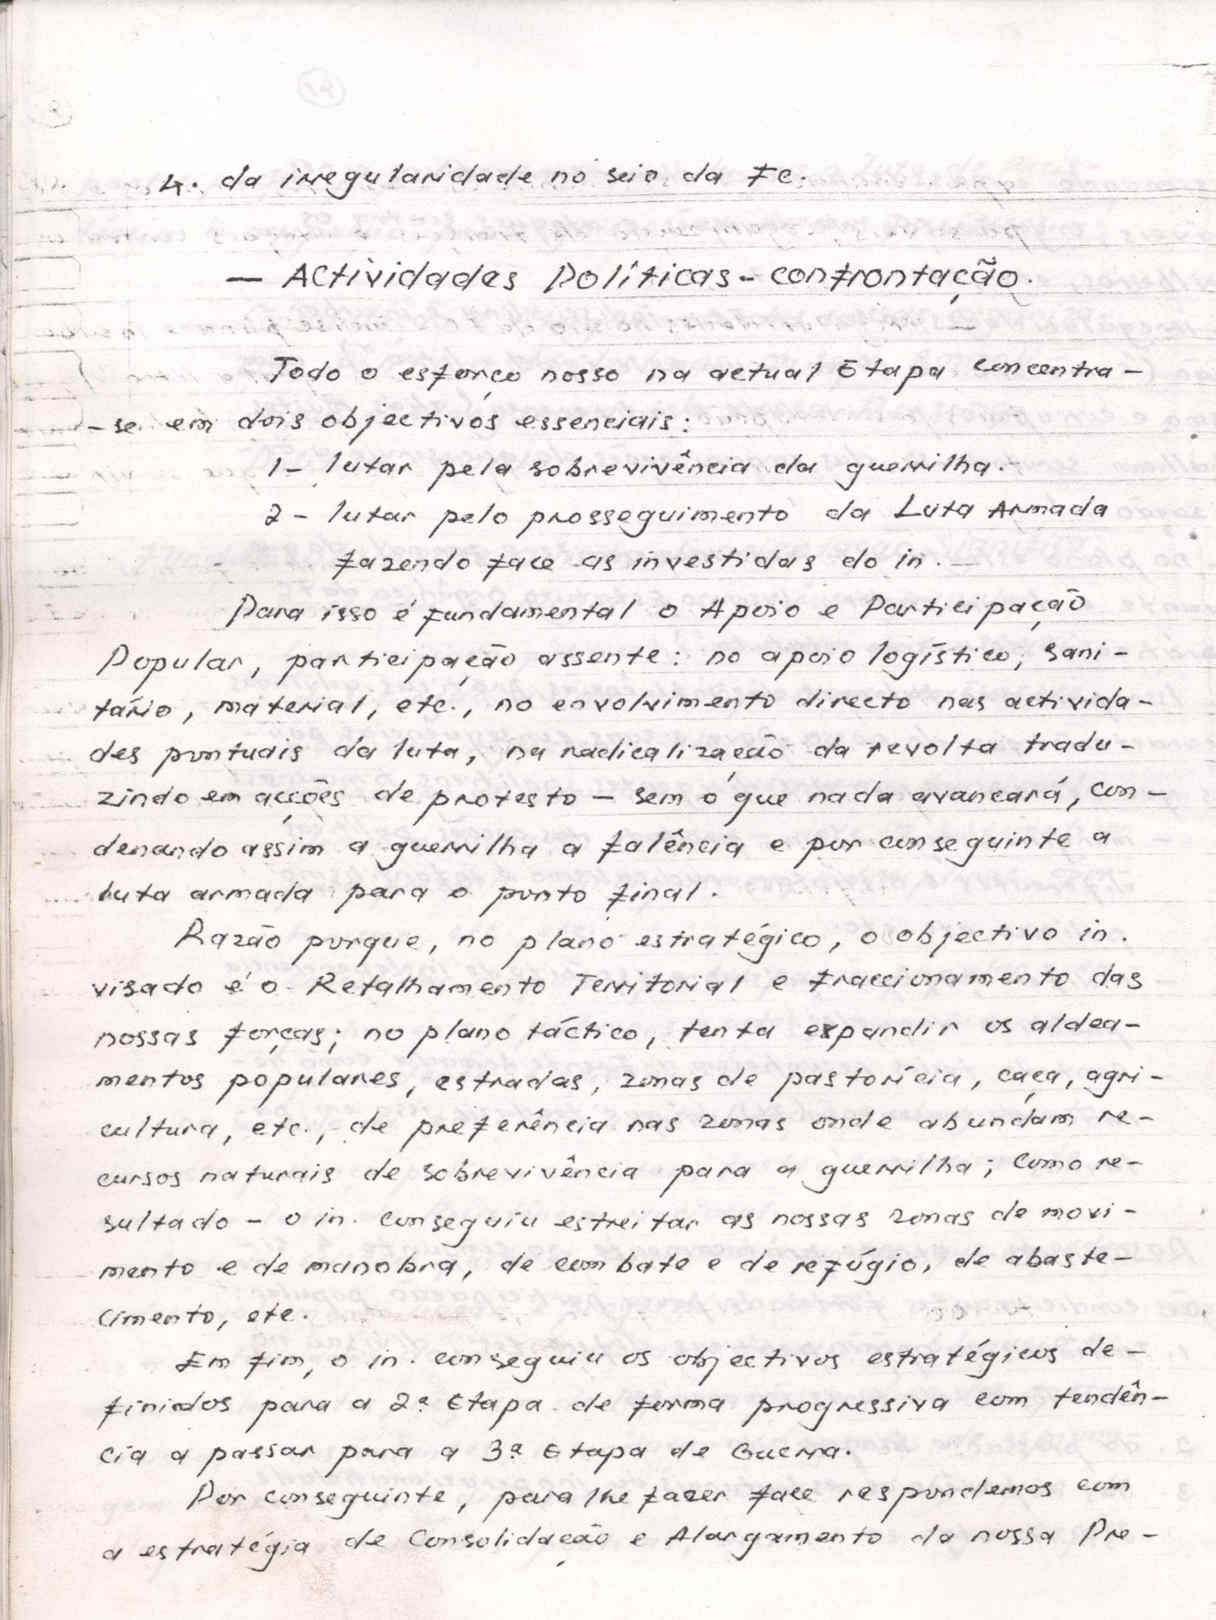 4. da irregularidade no seio da FC.
— Actividades Políticas - confrontação.
Todo o esforço nosso na actual Etapa concentra-
-se em dois objectivos essenciais:
1- lutar pela sobrevivência da guerrilha.
2- lutar pelo prosseguimento da Luta Armada
fazendo face as investidas do in.
Para isso é fundamental o Apoio e Participação
Popular, participação assente: no apoio logístico, sani-
tário, material, etc., no envolvimento directo nas activida-
des pontuais da luta, na radicalização da revolta tradu-
zindo em acções de protesto – sem o que nada avançará, con-
denando assim a guerrilha a falência e por conseguinte a
luta armada para o ponto final.
Razão porque, no plano estratégico, o objectivo in.
visado é o Retalhamento Territorial e fraccionamento das
nossas forças; no plano táctico, tenta expandir os aldea-
mentos populares, estradas, zonas de pastorícia, caça, agri-
cultura, etc., de preferência nas zonas onde abundam re-
cursos naturais de sobrevivência para a guerrilha; como re-
sultado – o in. conseguiu estreitar as nossas zonas de movi-
mento e de manobra, de combate e de refúgio, de abaste-
cimento, etc.
Em fim, o in. conseguiu os objectivos estratégicos de-
finidos para a 2ª Etapa de forma progressiva com tendên-
cia a passar para a 3ª Etapa de Guerra.
Por conseguinte, para lhe fazer face respondemos com
a estratégia de Consolidação e Alargamento da nossa Pre-